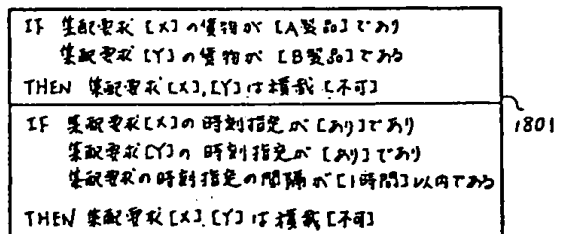 IF 集配要求[X]の貨物が[A製品]であり
集配要求[Y]の貨物が[B製品]である
THEN 集配要求[X],[Y]は積載[不可]
IF 集配要求[X]の時刻指定が[あり]であり
集配要求[Y]の時刻指定が[あり]であり
集配要求の時刻指定の間隔が[1時間]以内である
THEN 集配要求[X],[Y]は積載[不可]
1801